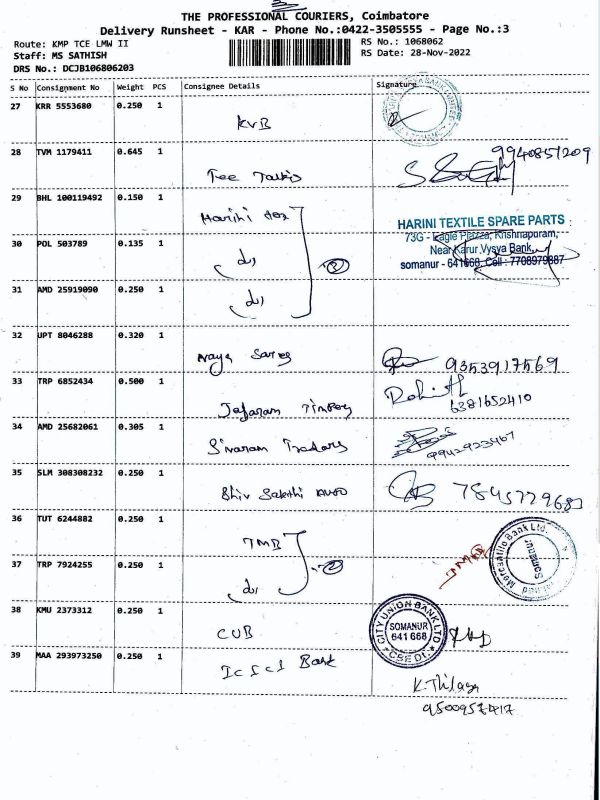 3
THE PROFESSIONAL COURIERS, Coimbatore
Delivery Runsheet - KAR - Phone No.:0422-3505555 - Page No.:3
Route: KMP TCE LMW II
RS No.: 1068062
Staff: MS SATHISH
RS Date: 28-Nov-2022
DRS No.: DCJB106806203
S No Consignment No Weight PCS Consignee Details Signature
27 KRR 5553680 0.250 1 KVB
28 TVM 1179411 0.645 1 Tee 9940851209
29 BHL 100119492 0.150 1 Harini
HARINI TEXTILE SPARE PARTS
73G - Eagle Plazza, Krishnapuram,
Near Karur Vysya Bank,
somanur - 641668. Cell : 7708979887
30 POL 503789 0.135 1 do 3
31 AMD 25919090 0.250 1 do
32 UPT 8046288 0.320 1 9353917569
33 TRP 6852434 0.500 1 Jafaram Rohith
6381652410
34 AMD 25682061 0.305 1 Sivaram Traders
9942923467
35 SLM 308308232 0.250 1 Shiv Sakthi
36 TUT 6244882 0.250 1 TMB
Mercantile Bank Ltd
Somanur
37 TRP 7924255 0.250 1 do 2
38 KMU 2373312 0.250 1 CUB
CITY UNION BANK LTD
SOMANUR
641 668
39 MAA 293973250 0.250 1 ICICI Bank
K. Thilaga
9500957417